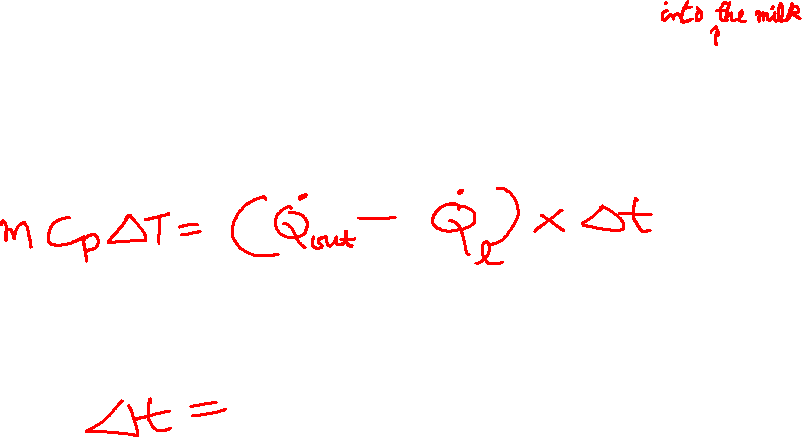 into the milk
↑
mCpΔT = (Q̇out − Q̇l) × Δt
Δt =